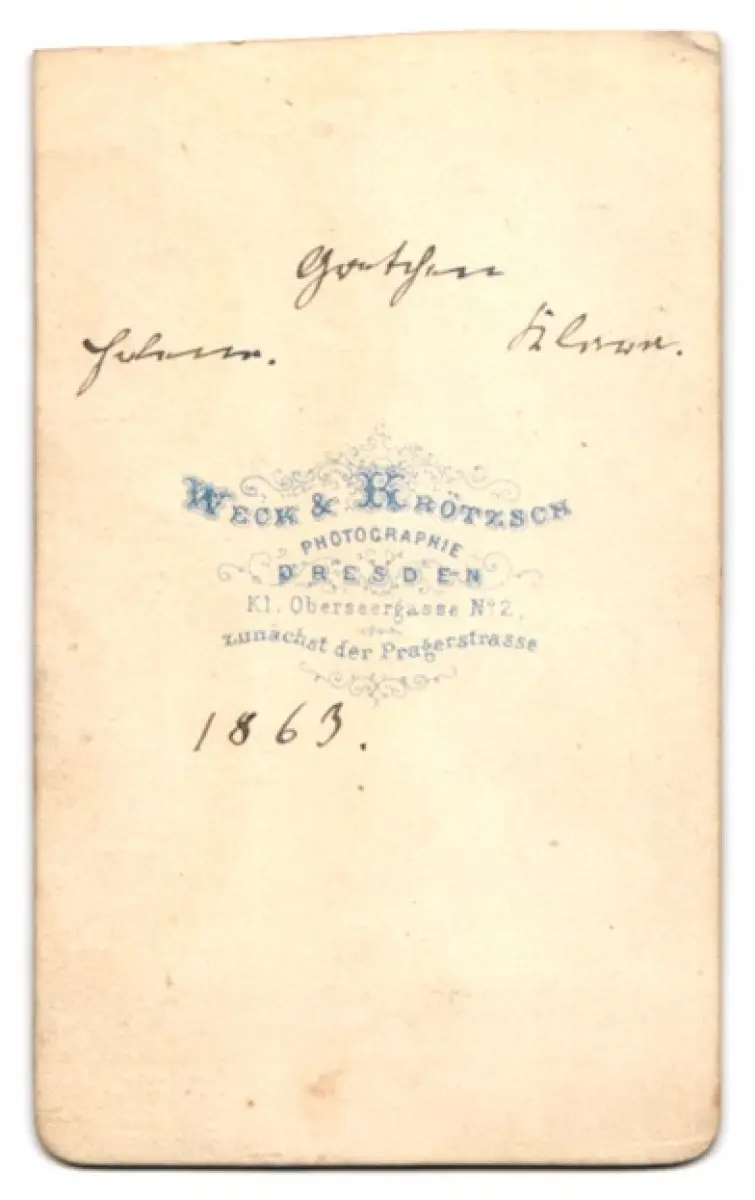 Gretchen
Helene.
Klara.
WECK & KRÖTZSCH
PHOTOGRAPHIE
DRESDEN
Kl. Oberseergasse No 2,
zunächst der Pragerstrasse
1863.